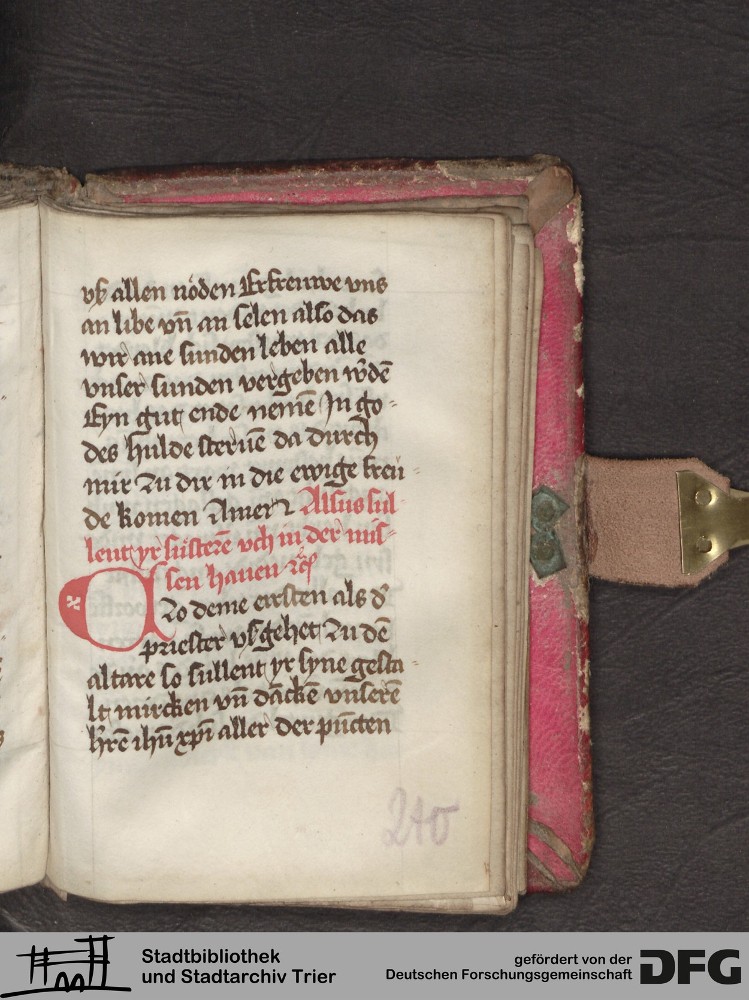 vß allen nöden Erfreuwe vns
an libe vn̄ an selen also das
wir ane sunden leben alle
vnser sunden vergeben w̄dē
Eyn gut ende nemē In go-
des hulde steruē da durch
mir zu dir in die ewige freü-
de komen Amen Alsus sul
lent yr süsterē vch in der mis-
sen hauen
Zo deme eirsten als d'
priester vß gehet zu dē
altare so sullent yr syne gesta-
lt mircken vn̄ dāckē vnserē
h're ihū xp̄i aller der pūcten
240
Stadtbibliothek
und Stadtarchiv Trier
gefördert von der
Deutschen Forschungsgemeinschaft
DFG